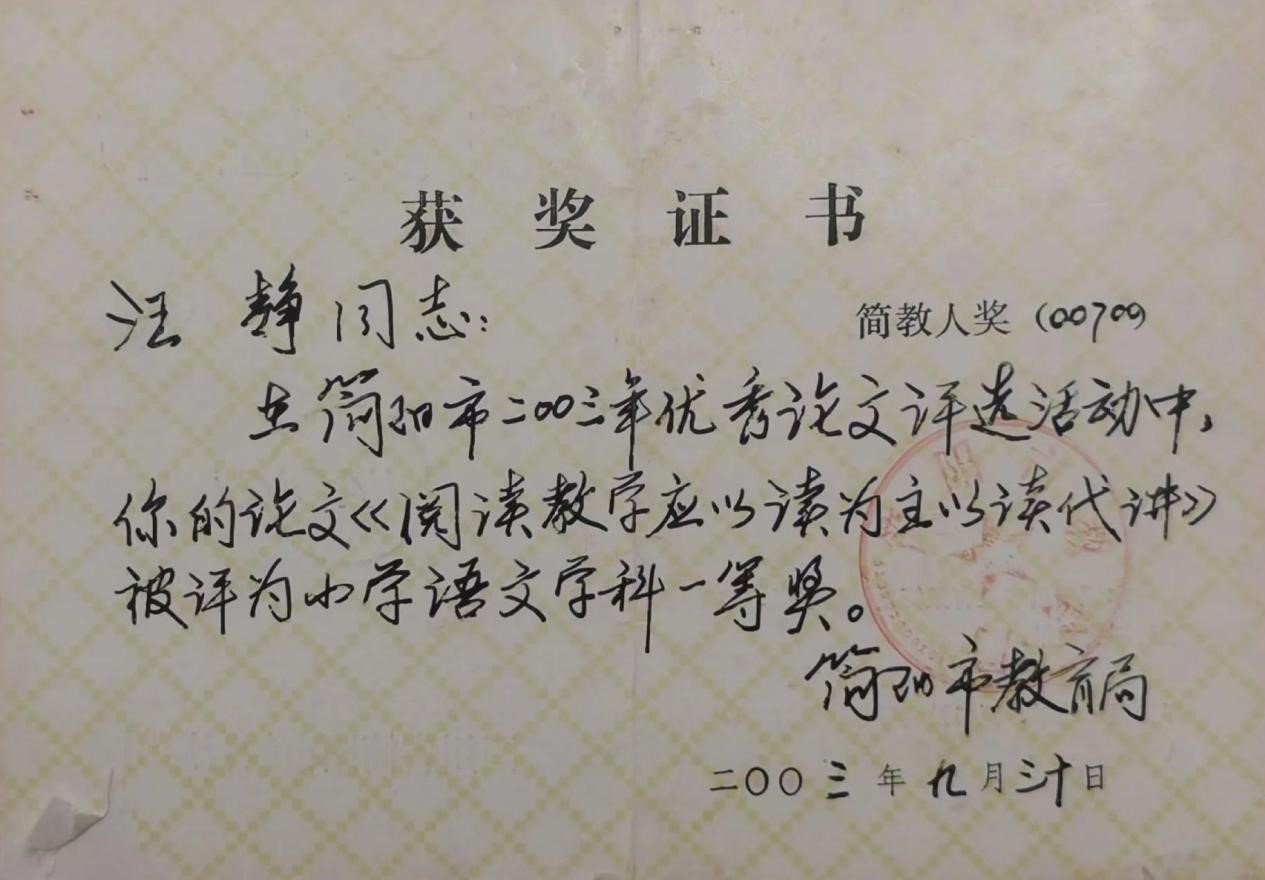 获奖证书
汪静同志:
简教人奖(00709)
在简阳市二00三年优秀论文评选活动中,
你的论文《阅读教学应以读为主以读代讲》
被评为小学语文学科一等奖。
简阳市教育局
二〇〇三年九月三十日